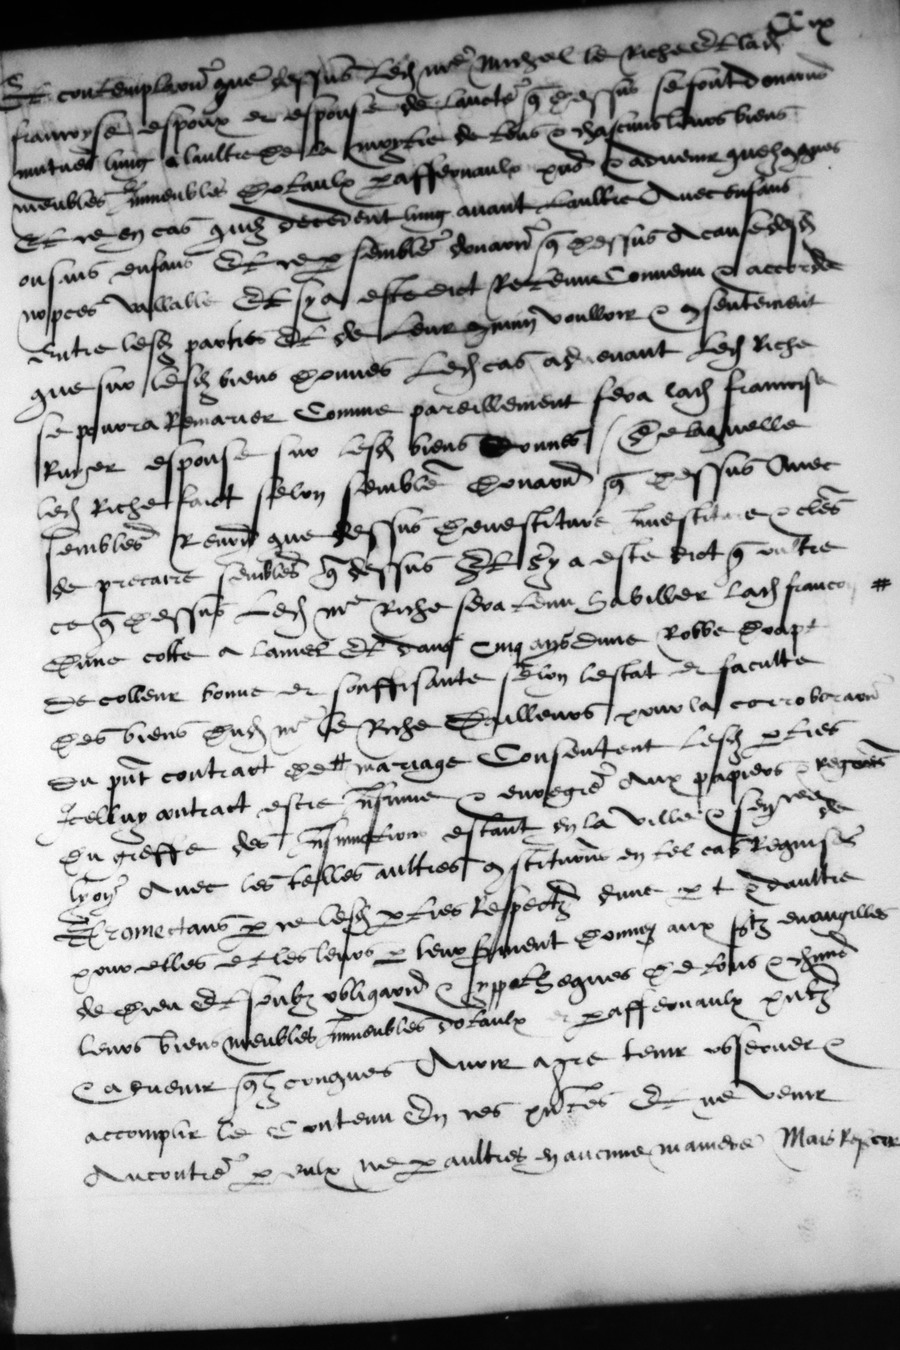 CC ix
Et contemplation que dessus led me Michiel le Riche et lad
francoyse espoux et espouse de lauctе q dessus se sont donnes
mutuel lung a laultre de la moytie de tous et chascuns leurs biens
meubles Immeubles dotaulx paraffernaulx pns et advenir quelzcqques
Et ce en cas quilz decedent lung avant laultre Avec enfans
ou sans enfans Et ce p semble donaon q dessus A cause desd
nopces vaillable Et sy a este dict Retenu Convenu et accorde
Entre lesd parties Et de leur commun voulloir et consentement
que sur lesd biens donnes Led cas advenant Led Riche
se pourra Remarier Comme pareillement fera lad francoise
espouse sur lesd biens donnes / De laquelle
led Riche faict selon semble donaon q dessus Avec
sembles que dessus devestiture Investiture et cles
de precaire sembles q dessus Et sy a este dict q oultre
ce q dessus Led me Riche sera tenu habiller lad francoy #
dune cotte a lamel Et dans cinq ans dune Robbe drapt
de colleur bonne et souffisante selon lestat et faculte
des biens dud me le Riche Dailleurs pour la corroboraon
du pnt contract de # mariage Consentent lesd pties
Icelluy contract estre Insinue et enregre Aux papiers et Regres
du greffe des Insinuations estant en la ville et senechee de
lyon Avec les telles aultres constituons en tel cas Requises
Promectans p ce lesd pties Respectz dune pt et daultre
pour elles et les leurs p leur serment donnez aux stz evangilles
de dieu Et soubz obligaon et ypothegues de tous et chuns
leurs biens meubles Immeubles dotaulx et paraffernaulx pntz
et advenir qlzconques Avoir a gre tenir observer et
accomplir le Contenu En ces pntes Et ne venir
Au contre p eulx ne p aultres en aucune maniere Mais